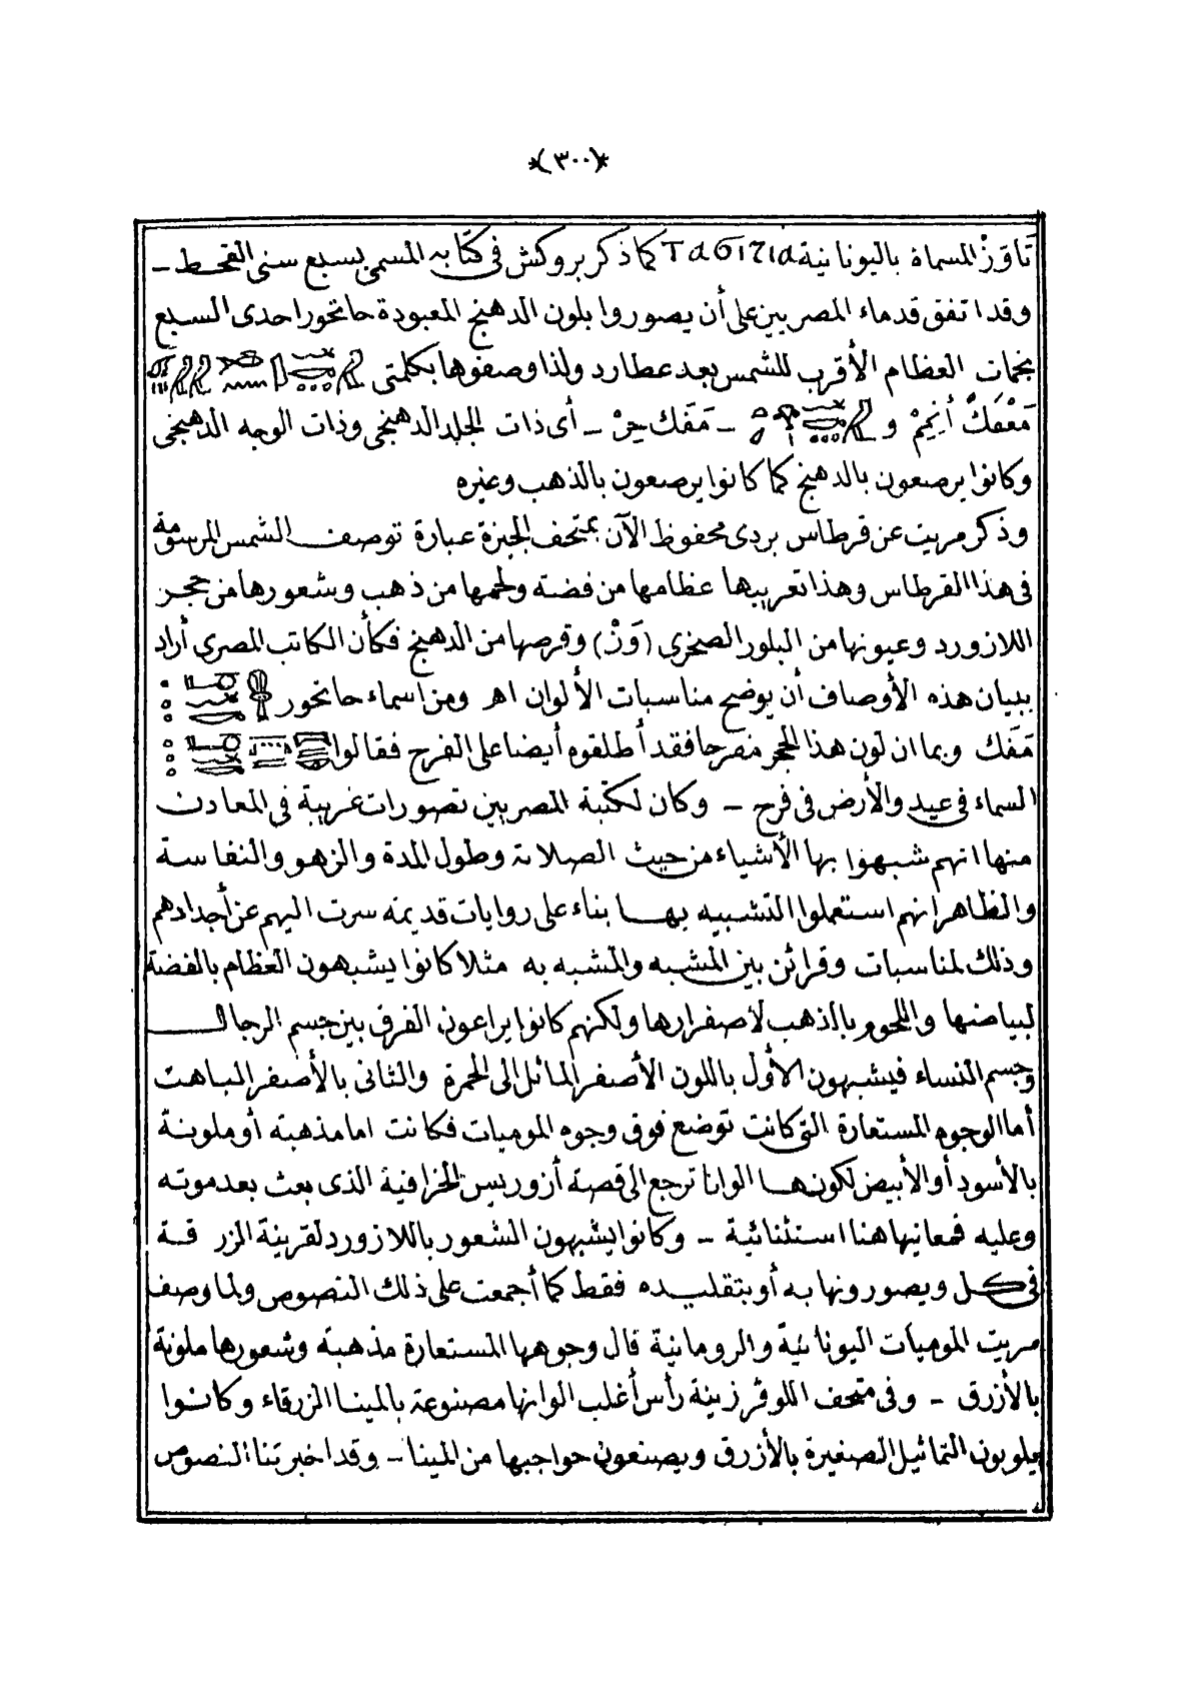 *(٣٠٠)*
تَاوَزْ المسماة باليونانية Ταбιζια كما ذكر بروكش فى كتابه المسمى بسبع سنى القحط –
وقد اتفق قدماء المصريين على أن يصوروا بلون الدهنج المعبودة حاتحور احدى السبع
نجمات العظام الأقرب للشمس بعد عطارد ولذا وصفوها بكلمتى
مَعْفَكْ أَنِمِمْ و – مَفَك حِرْ – أى ذات الجلد الدهنجى وذات الوجه الدهنجى
وكانوا يرصعون بالدهنج كما كانوا يرصعون بالذهب وغيره
وذكر مريت عن قرطاس بردى محفوظ الآن بمتحف الجيزة عبارة توصف الشمس المرسومة
فى هذا القرطاس وهذا تعريبها عظامها من فضة ولحمها من ذهب وشعورها من حجر
اللازورد وعيونها من البلور الصخرى (وَزْ) وقرصها من الدهنج فكأن الكاتب المصرى أراد
ببيان هذه الأوصاف أن يوضح مناسبات الألوان اه ومن اسماء حاتحور
مَفَك وبما ان لون هذا الحجر مفرحا فقد أطلقوه أيضا على الفرح فقالوا
السماء فى عيد والأرض فى فرح – وكان لكتبة المصريين تصورات غريبة فى المعادن
منها انهم شبهوا بها الأشياء من حيث الصلابة وطول المدة والزهو والنفاسة
والظاهر انهم استعملوا التشبيه بها بناء على روايات قديمة سرت اليهم عن أجدادهم
وذلك لمناسبات وقرائن بين المشبه والمشبه به مثلا كانوا يشبهون العظام بالفضة
لبياضها واللحوم بالذهب لاصفرارها ولكنهم كانوا يراعون الفرق بين جسم الرجال
وجسم النساء فيشبهون الأول باللون الأصفر المائل الى الحمرة والثانى بالأصفر الباهت
أما الوجوه المستعارة التى كانت توضع فوق وجوه الموميات فكانت اما مذهبة أو ملونة
بالأسود أو الأبيض لكونها الوانا ترجع الى قصة أزوريس الخرافية الذى بعث بعد موته
وعليه فمعانيها هنا استثنائية – وكانوا يشبهون الشعور باللازورد لقرينة الزرقة
فى كل ويصورونها به أو بتقليده فقط كما أجمعت على ذلك النصوص ولما وصف
مريت الموميات اليونانية والرومانية قال وجوهها المستعارة مذهبة وشعورها ملونة
بالأزرق – وفى متحف اللوڤر زينة رأس أغلب الوانها مصنوعة بالمينا الزرقاء وكانوا
يلونون التماثيل الصغيرة بالأزرق ويصنعون حواجبها من المينا – وقد اخبرتنا النصوص